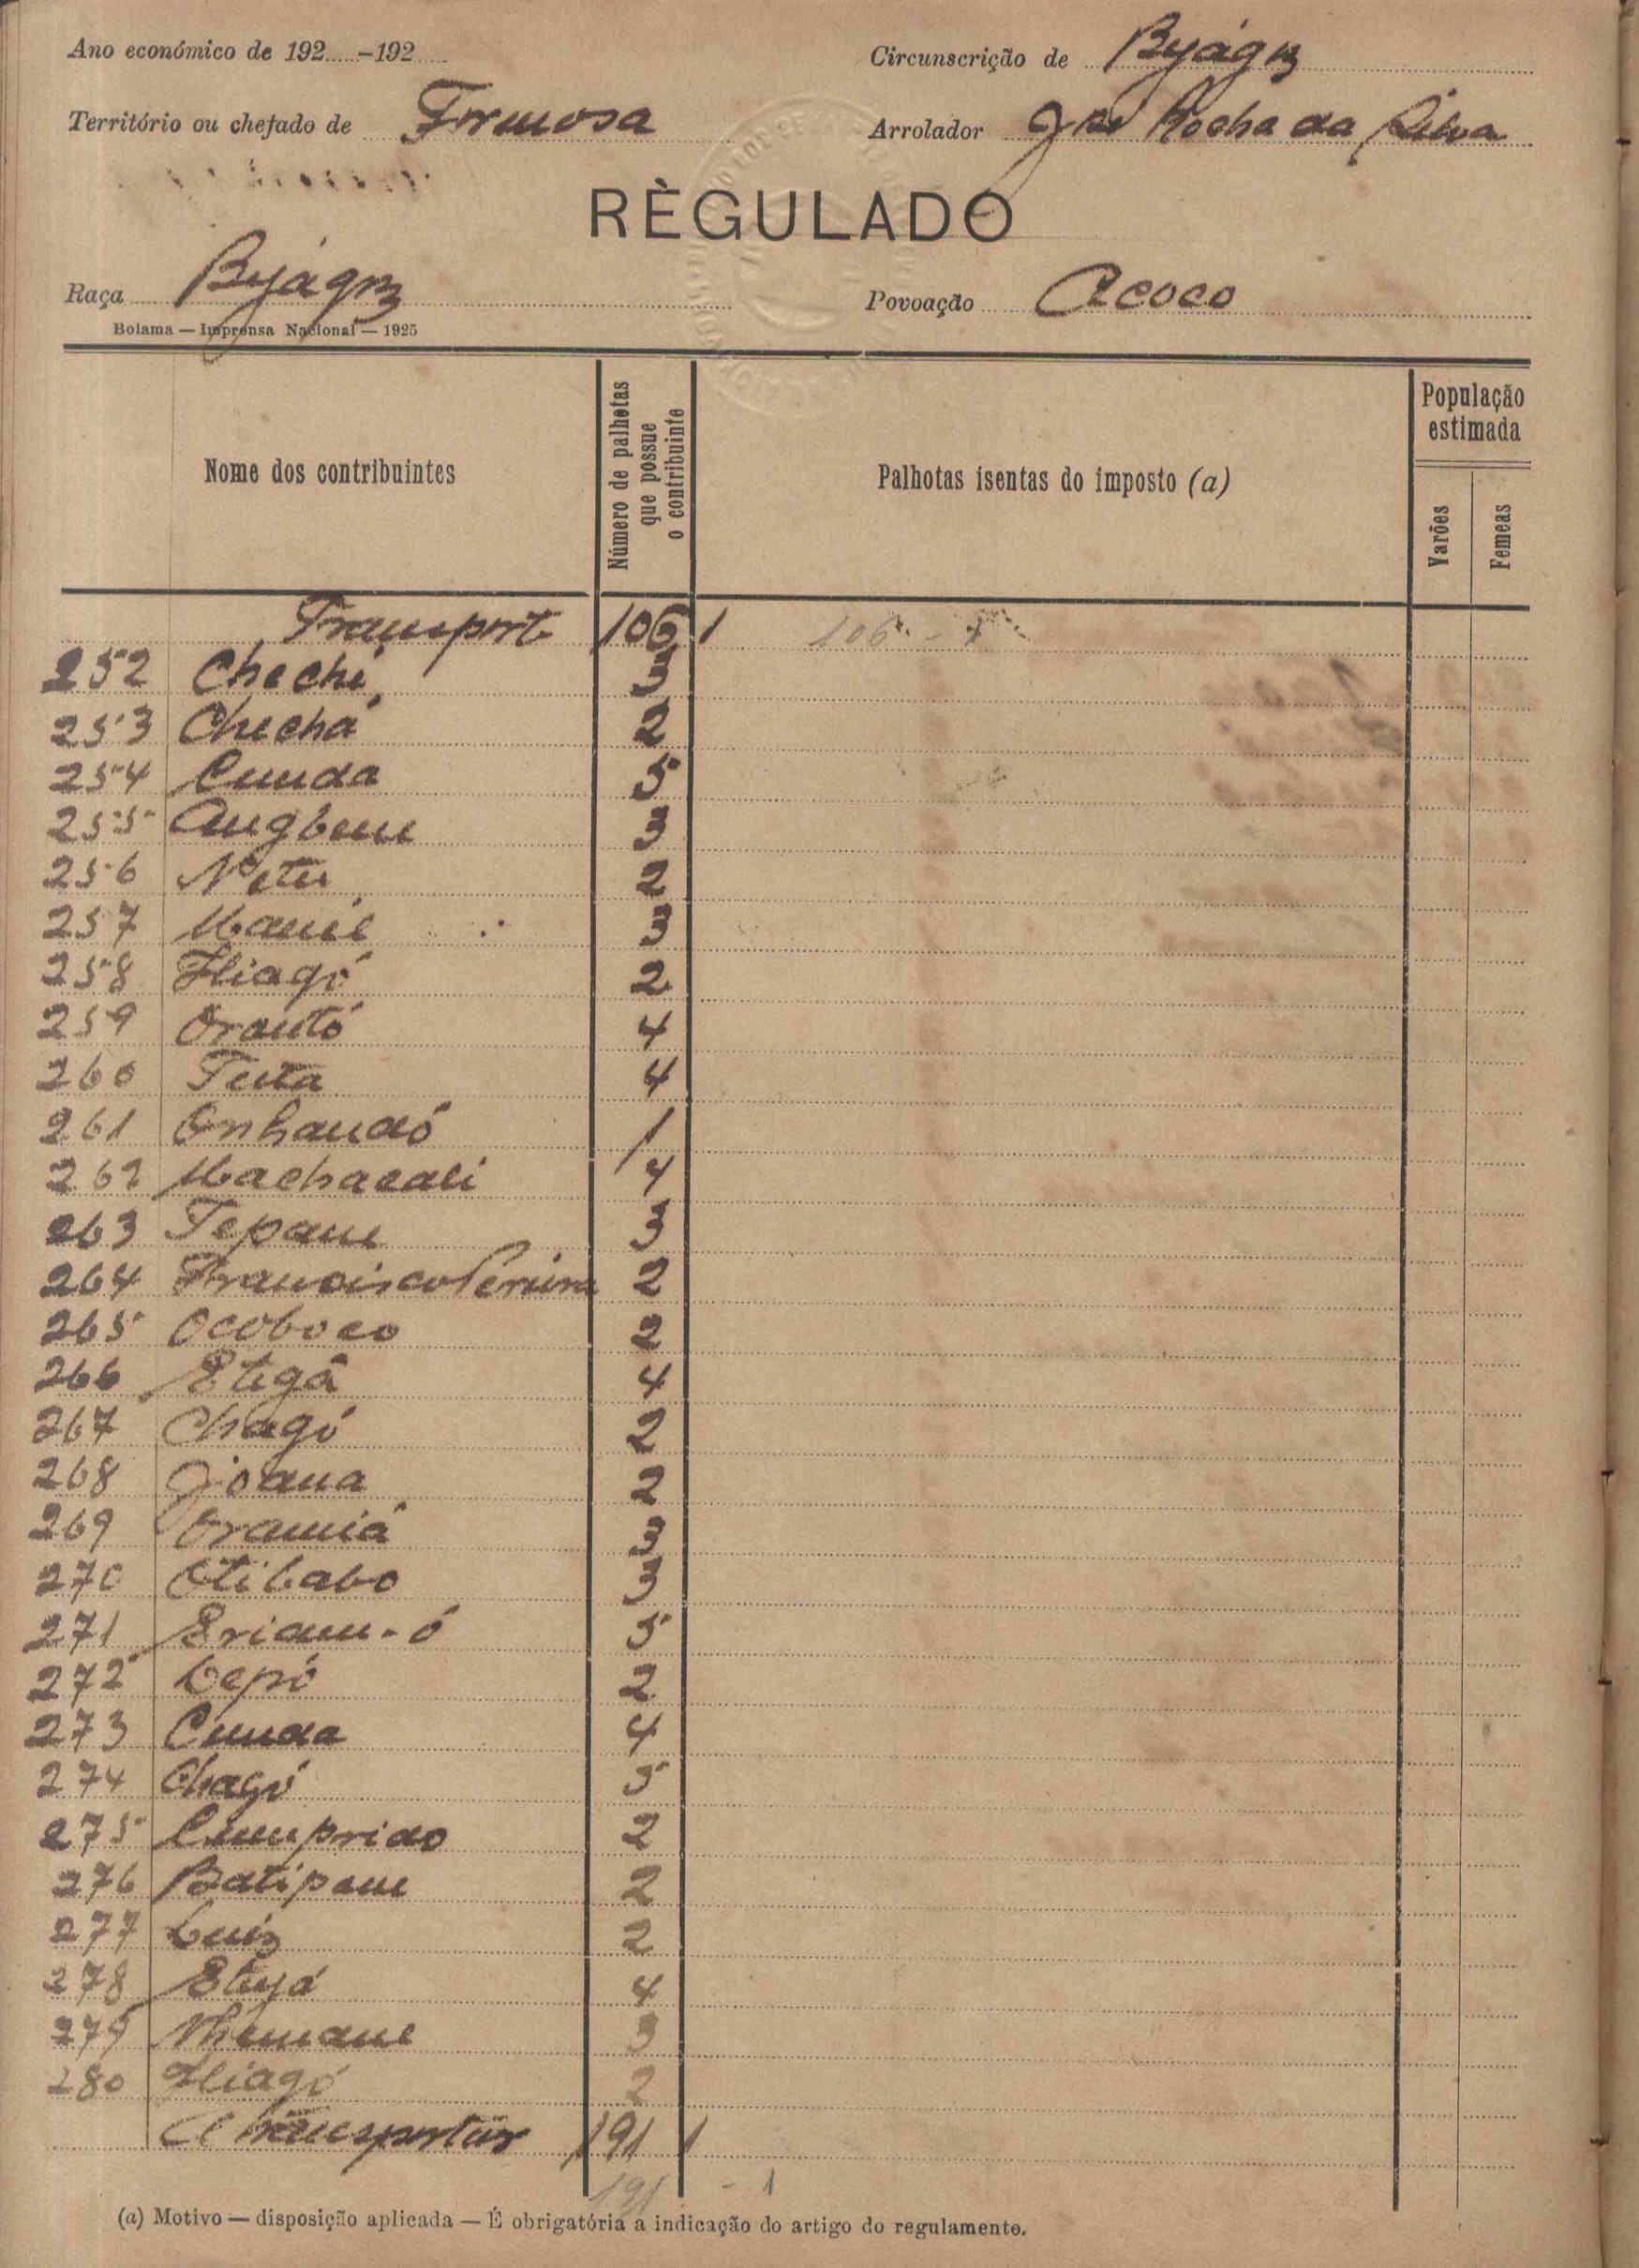 Ano económico de 192.....-192.....
Circunscrição de Byágoz
Território ou chefado de Formosa
Arrolador José Rocha da Silva
RÈGULADO
Raça Byágoz
Povoação Acoco
Bolama — Imprensa Nacional — 1925
Nome dos contribuintes
Número de palhotas que possue o contribuinte
Palhotas isentas do imposto (a)
População estimada
Varões
Femeas
Transporte 106 1 106 - 1
252 Chechi 3
253 Chechá 2
254 Cunda 5
255 Augbene 3
256 Netu 2
257 Manie 3
258 Iliagó 2
259 Orantó 4
260 Tuta 4
261 Onhandó 1
262 Machacali 4
263 Tepane 3
264 Francisco Pereira 2
265 Ocoboco 2
266 Etegâ 4
267 Chagó 2
268 Joana 2
269 Oramiá 3
270 Otibabo 3
271 Eriam-ó 5
272 Lepó 2
273 Cunda 4
274 Chagó 5
275 Cumprido 2
276 Batipane 2
277 Luiz 2
278 Eteyá 4
279 Nhemane 3
280 Iliagó 2
A transportar 191 1
191 - 1
(a) Motivo — disposição aplicada — É obrigatória a indicação do artigo do regulamento.